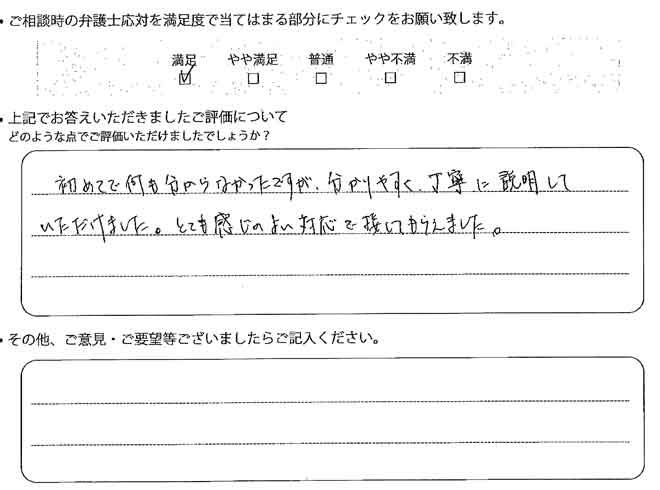 ・ご相談時の弁護士応対を満足度で当てはまる部分にチェックをお願い致します。
満足 やや満足 普通 やや不満 不満
☑ □ □ □ □
・上記でお答えいただきましたご評価について
どのような点でご評価いただけましたでしょうか？
初めてで何も分からなかったですが、分かりやすく、丁寧に説明して
いただけました。とても感じのよい対応で接してもらえました。
・その他、ご意見・ご要望等ございましたらご記入ください。